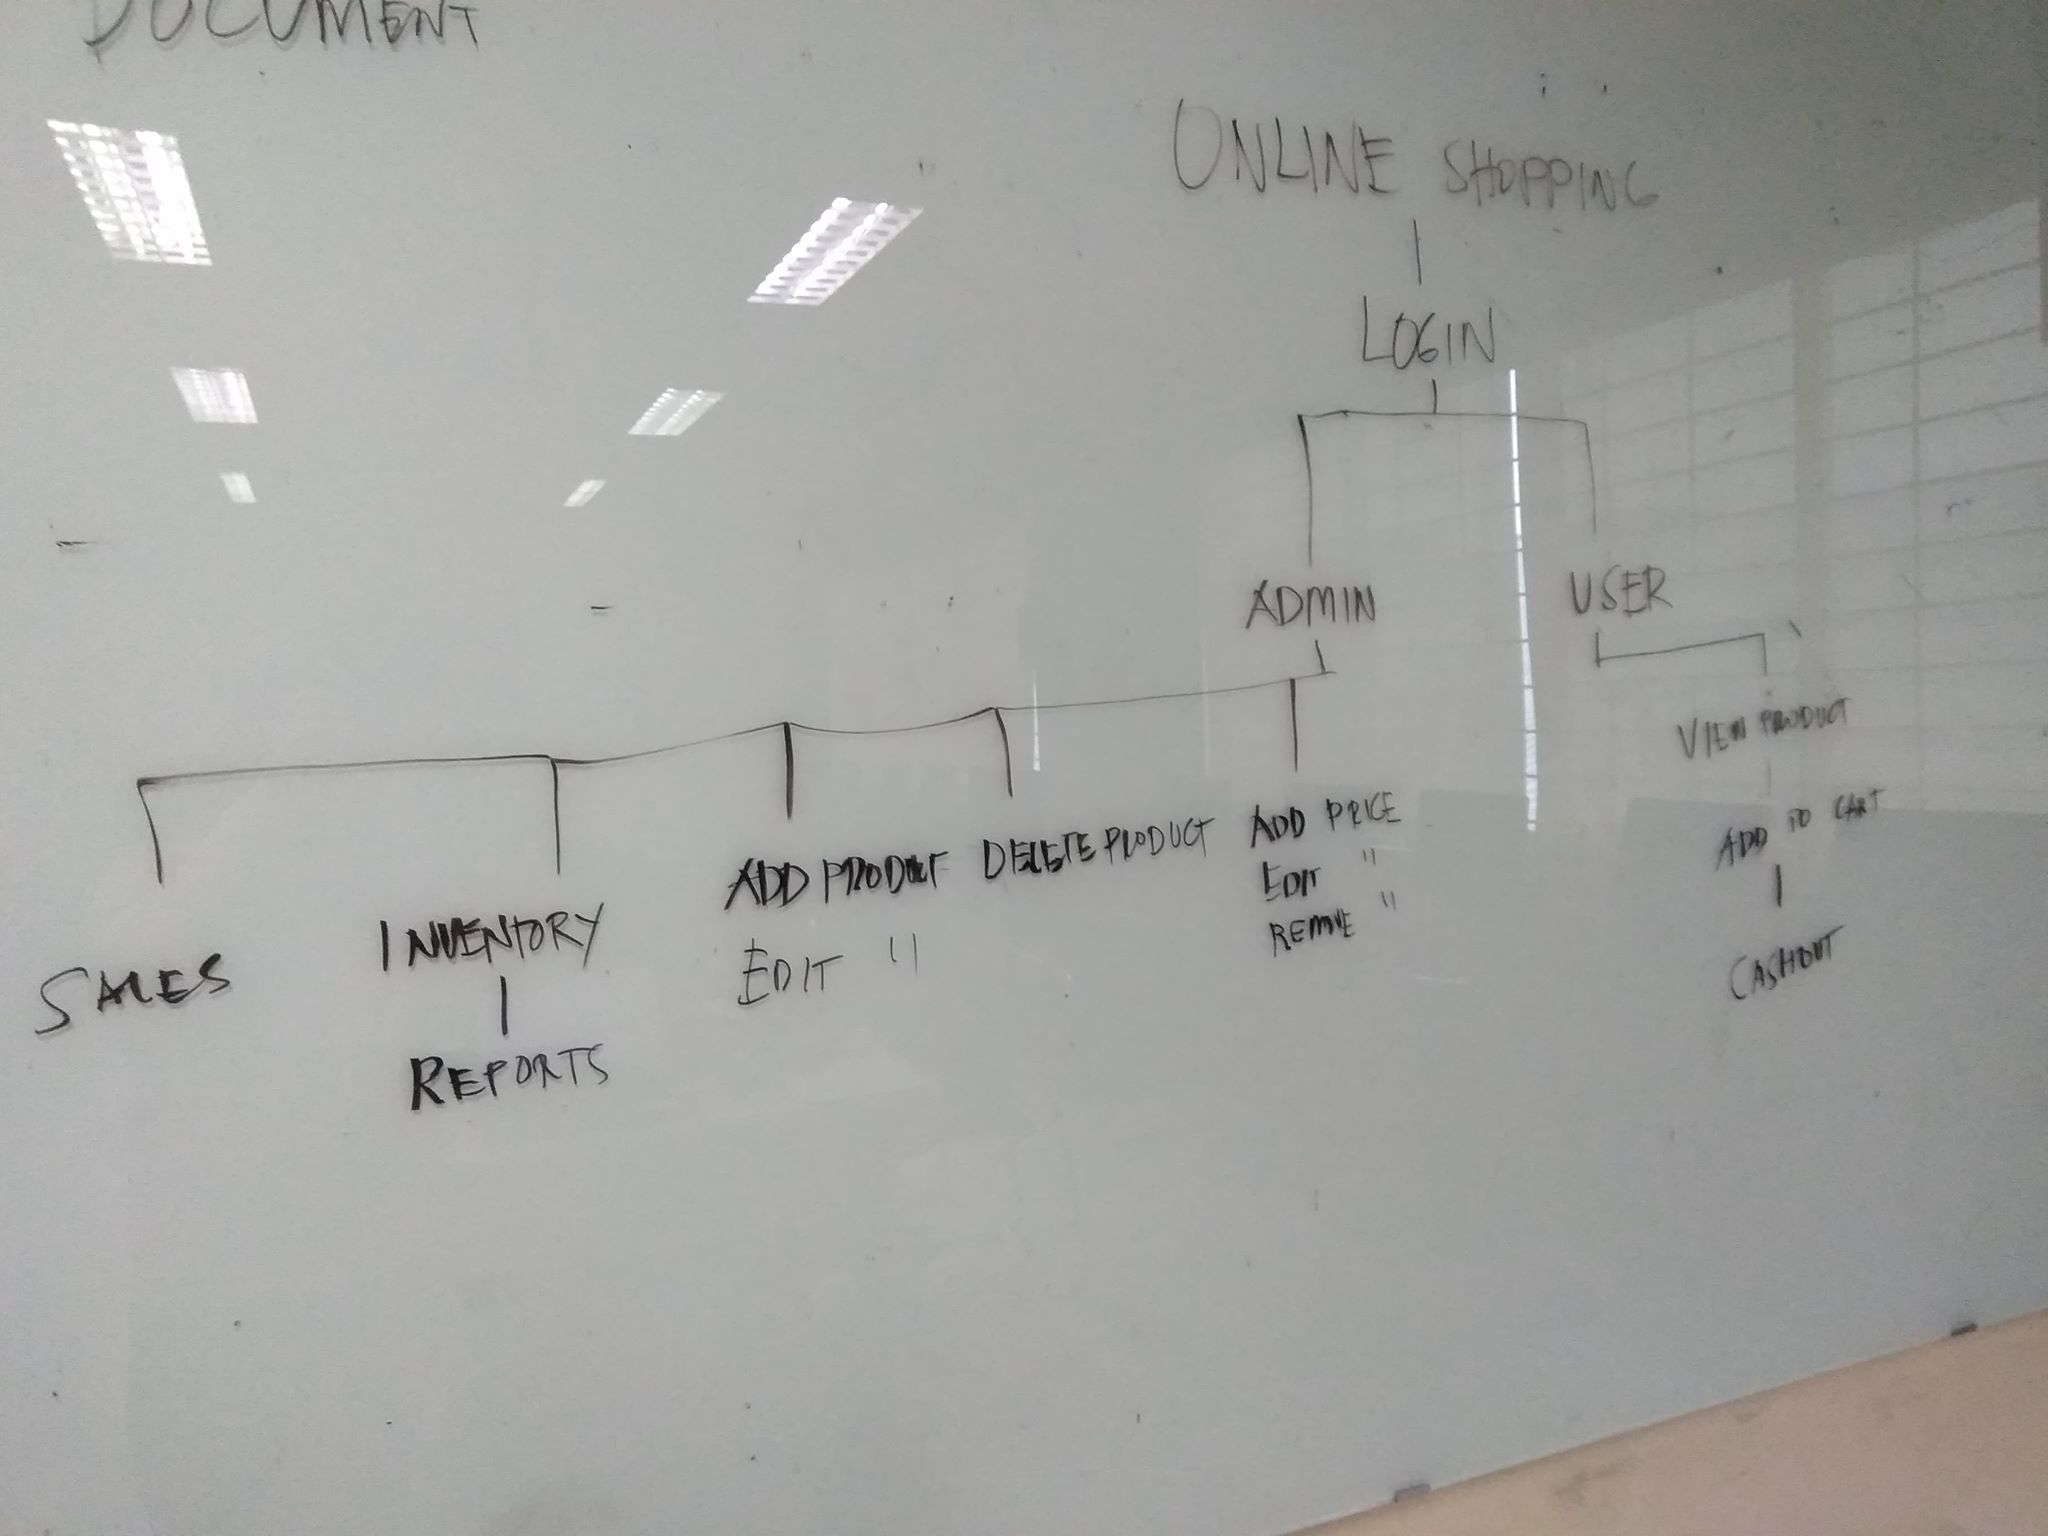 DOCUMENT
ONLINE SHOPPING
LOGIN
ADMIN
USER
SALES
INVENTORY
REPORTS
ADD PRODUCT
EDIT "
DELETE PRODUCT
ADD PRICE
EDIT "
REMOVE "
VIEW PRODUCT
ADD TO CART
CASHOUT